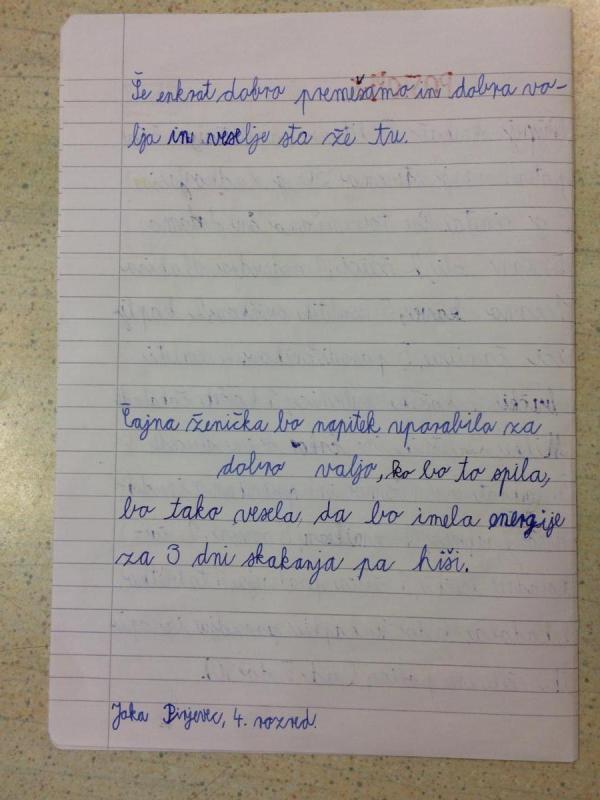 Še enkrat dobro premešamo in dobra vo-
lja in veselje sta že tu.
Čajna ženička bo napitek uporabila za
dobro voljo, ko bo to spila,
bo tako vesela, da bo imela energije
za 3 dni skakanja po hiši.
Jaka Pirjevec, 4. razred.